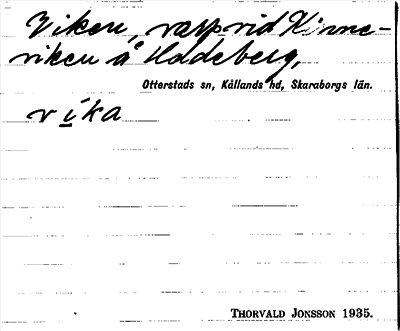 Viken, vass vid Kinne-
viken å Hadeberg,
Otterstads sn, Kållands hd, Skaraborgs län.
vika
THORVALD JONSSON 1935.